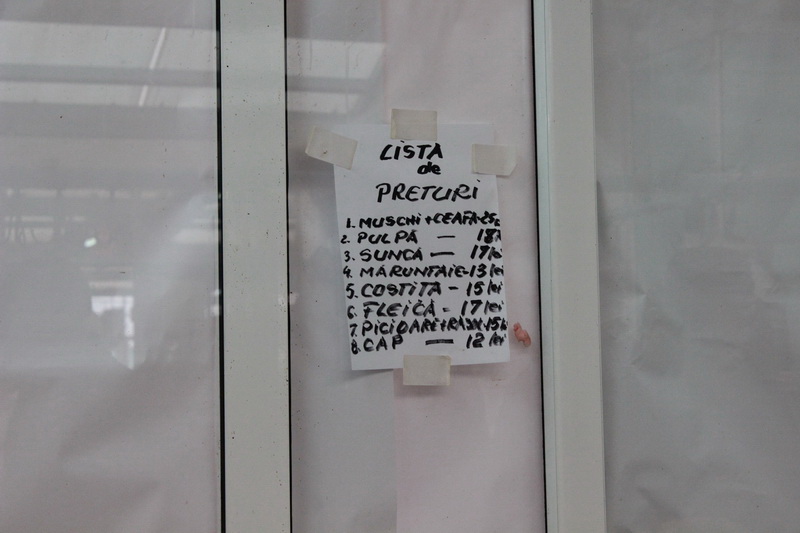 LISTA
de
PRETURI
1. MUSCHI + CEAFA-25
2. PULPA — 18
3. SUNCA — 17 lei
4. MARUNTAIE-13 lei
5. COSTITA - 15 lei
6. FLEICA - 17 lei
7. PICIOARE+RASOL-15
8. CAP — 12 lei